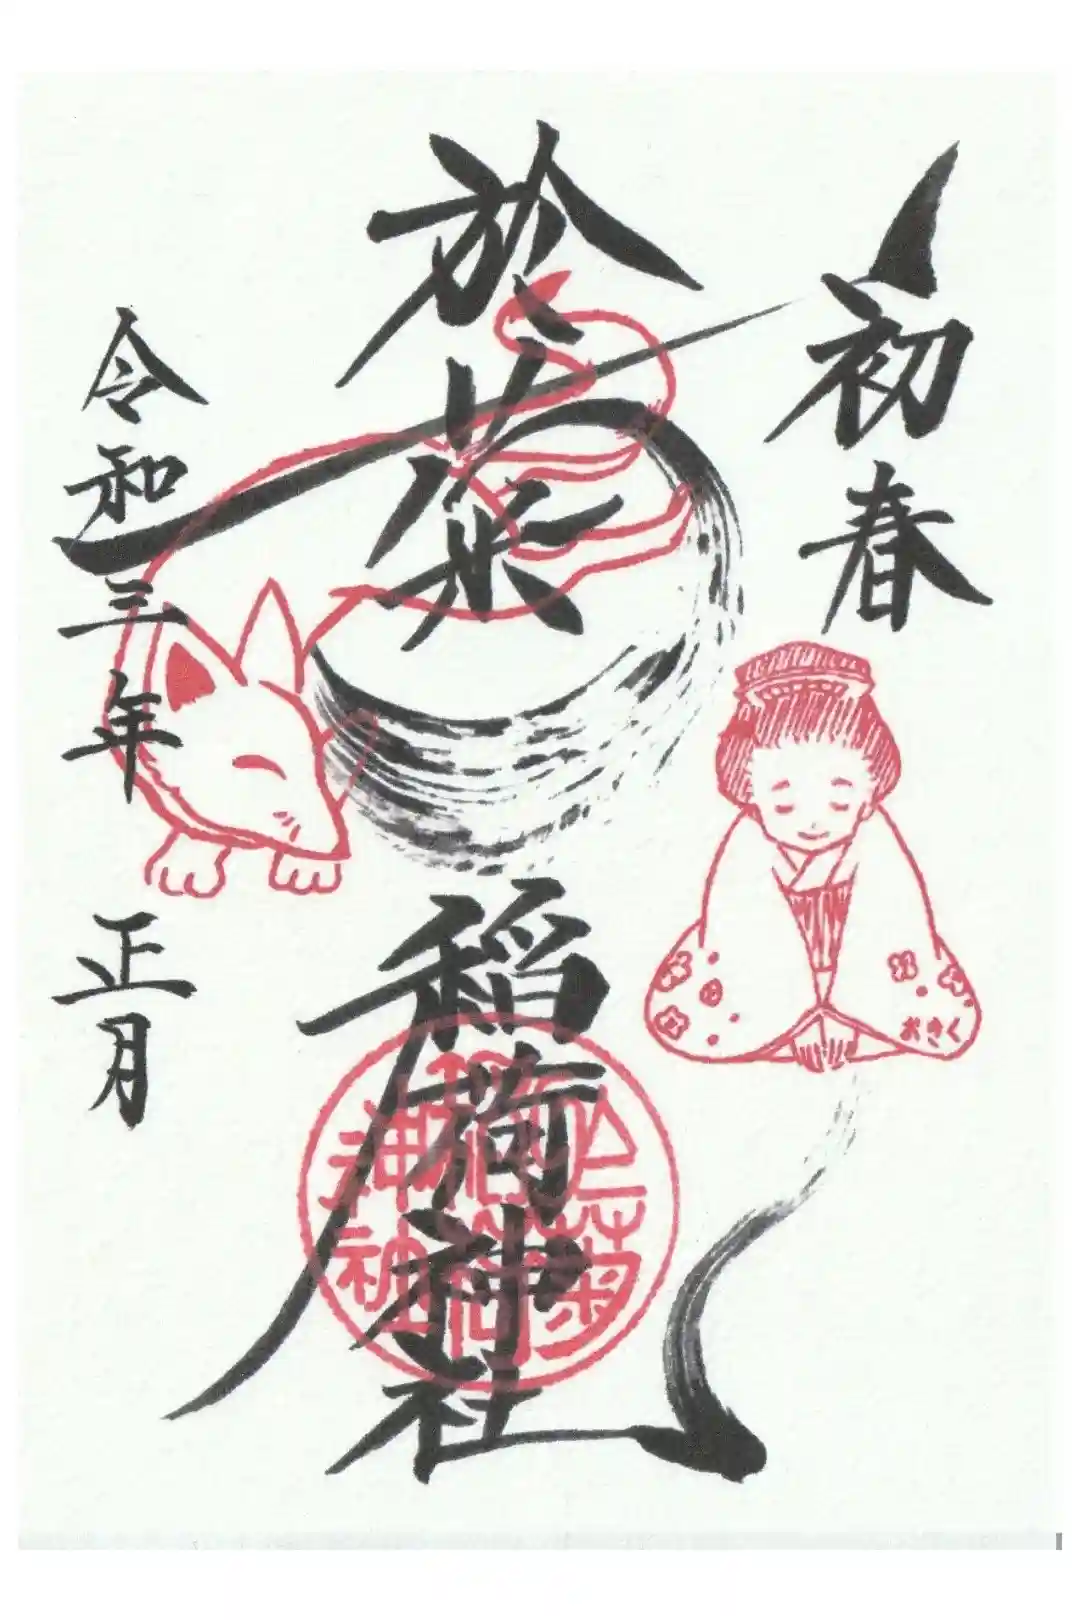 初春
おきく
於菊稲荷神社
於菊
稲荷
神社
令和三年 正月